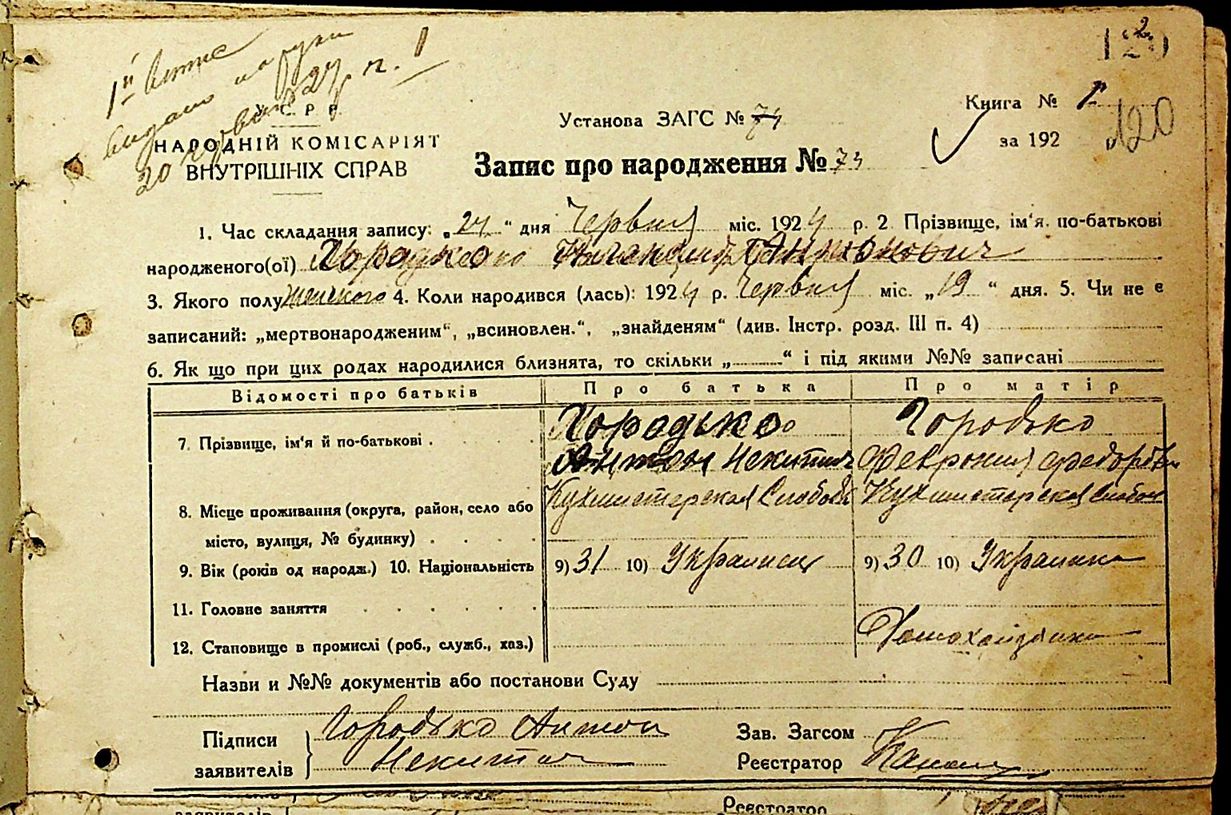 1й
видано на руки
20 червня 27 р.
123
У С Р Р
НАРОДНІЙ КОМІСАРІЯТ
ВНУТРІШНІХ СПРАВ
Установа ЗАГС № 74
Запис про народження № 73
Книга № 1
за 192
120
1. Час складання запису: „24“ дня Червня міс. 1924 р. 2. Прізвище, ім'я, по-батькові
народженого(ої) Городько Антонович
3. Якого полу Женского 4. Коли народився (лась): 1924 р. Червня міс. „19“ дня. 5. Чи не є
записаний: „мертвонародженим“, „всиновлен.“, „знайденям“ (див. Інстр. розд. III п. 4)
6. Як що при цих родах народилися близнята, то скільки „ “ і під якими №№ записані
Відомості про батьків Про батька Про матір
7. Прізвище, ім'я й по-батькові Городько Городько
Антон Некитич Феврония Федоровн
8. Місце проживання (округа, район, село або Кухмистерская Слобода Кухмистерская Слобод
місто, вулиця, № будинку)
9. Вік (років од народж.) 10. Національність 9) 31 10) Украинец 9) 30 10) Украинка
11. Головне заняття
12. Становище в промислі (роб., служб., хаз.) Домохозяйка
Назви и №№ документів або постанови Суду
Підписи Городько Антон Зав. Загсом
заявителів Некитич Реєстратор
заявителів Реєстратор